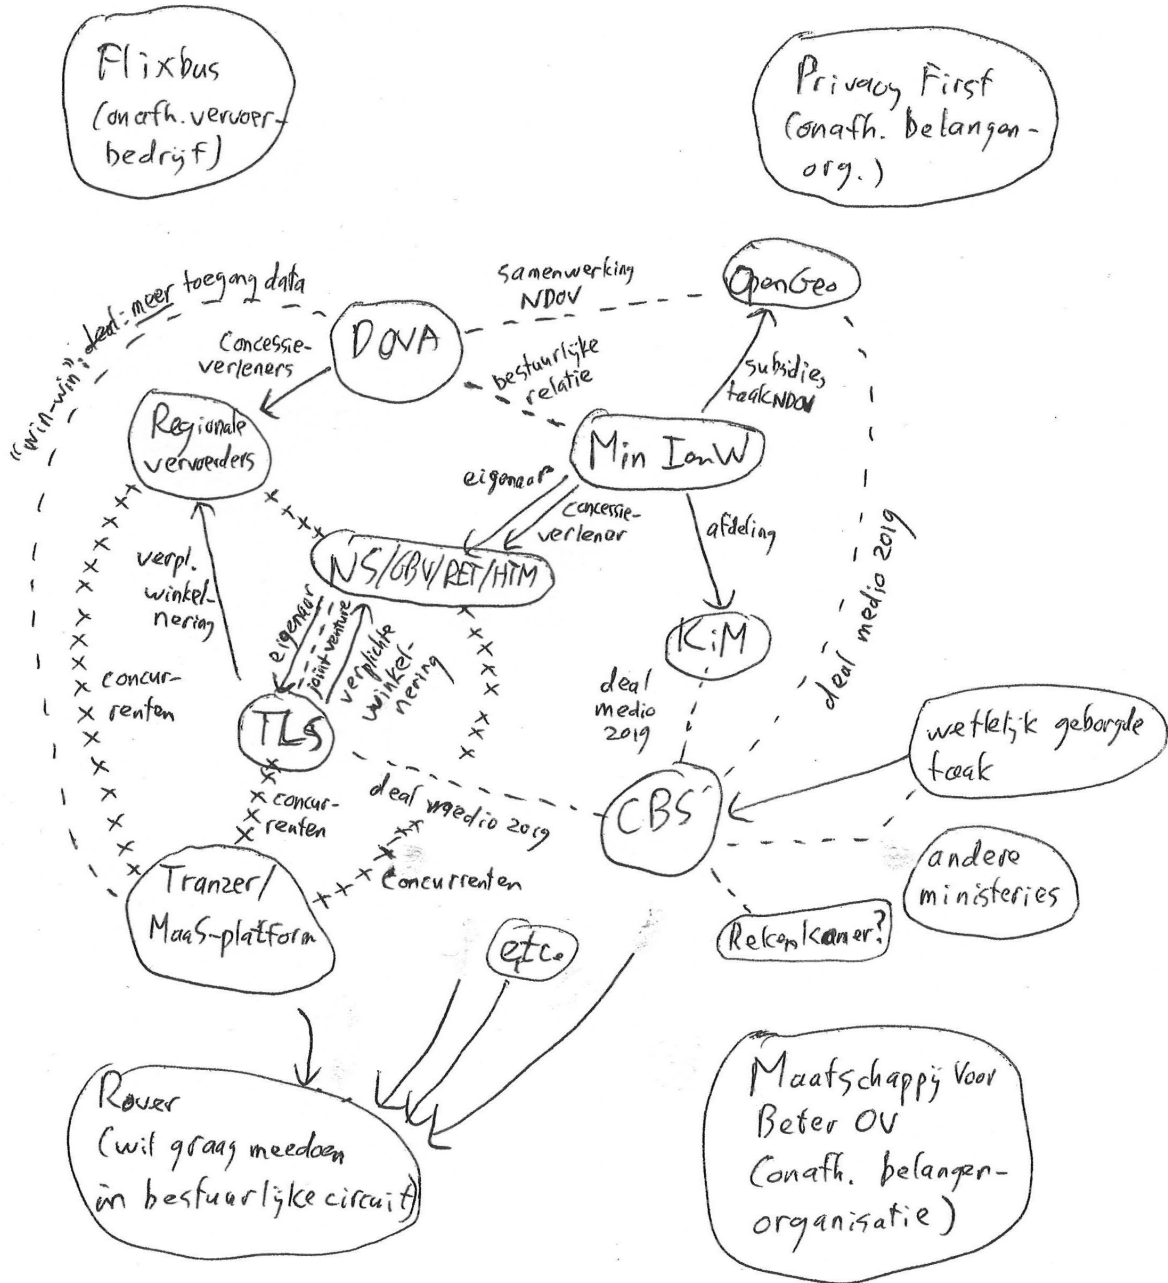 Flixbus
(onafh. vervoer-
bedrijf)
Privacy First
(onafh. belangen-
org.)
"win-win", deal: meer toegang data
samenwerking
NDOV
OpenGeo
DOVA
Concessie-
verleners
bestuurlijke
relatie
subsidie,
taak NDOV
Regionale
vervoerders
Min IenW
eigenaar
concessie-
verlener
afdeling
deal medio 2019
NS/GBV/RET/HTM
verpl.
winkel-
nering
eigenaar
joint venture
verplichte
winkel-
nering
KiM
deal
medio
2019
concur-
renten
TLS
wettelijk geborgde
taak
deal medio 2019
CBS
concur-
renten
andere
ministeries
Tranzer/
MaaS-platform
Concurrenten
Rekenkamer?
etc.
Rover
(wil graag meedoen
in bestuurlijke circuit)
Maatschappij voor
Beter OV
(onafh. belangen-
organisatie)